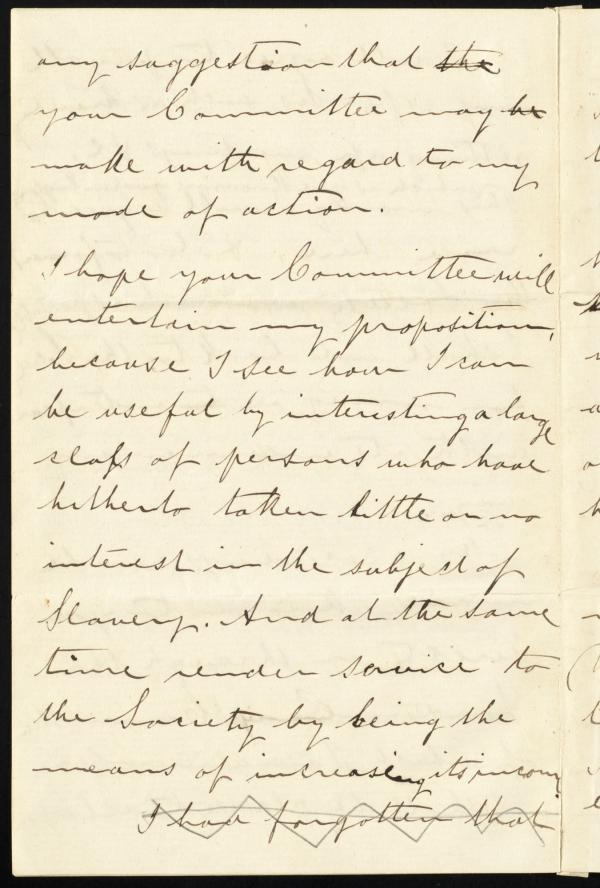 any suggestion that the
your Committee may be
make with regard to my
mode of action.
I hope your Committee will
entertain my proposition,
because I see how I can
be useful by interesting a large
class of persons who have
hitherto taken little or no
interest in the subject of
Slavery. And at the same
time render service to
the Society by being the
means of increasing its income
I had forgotten that